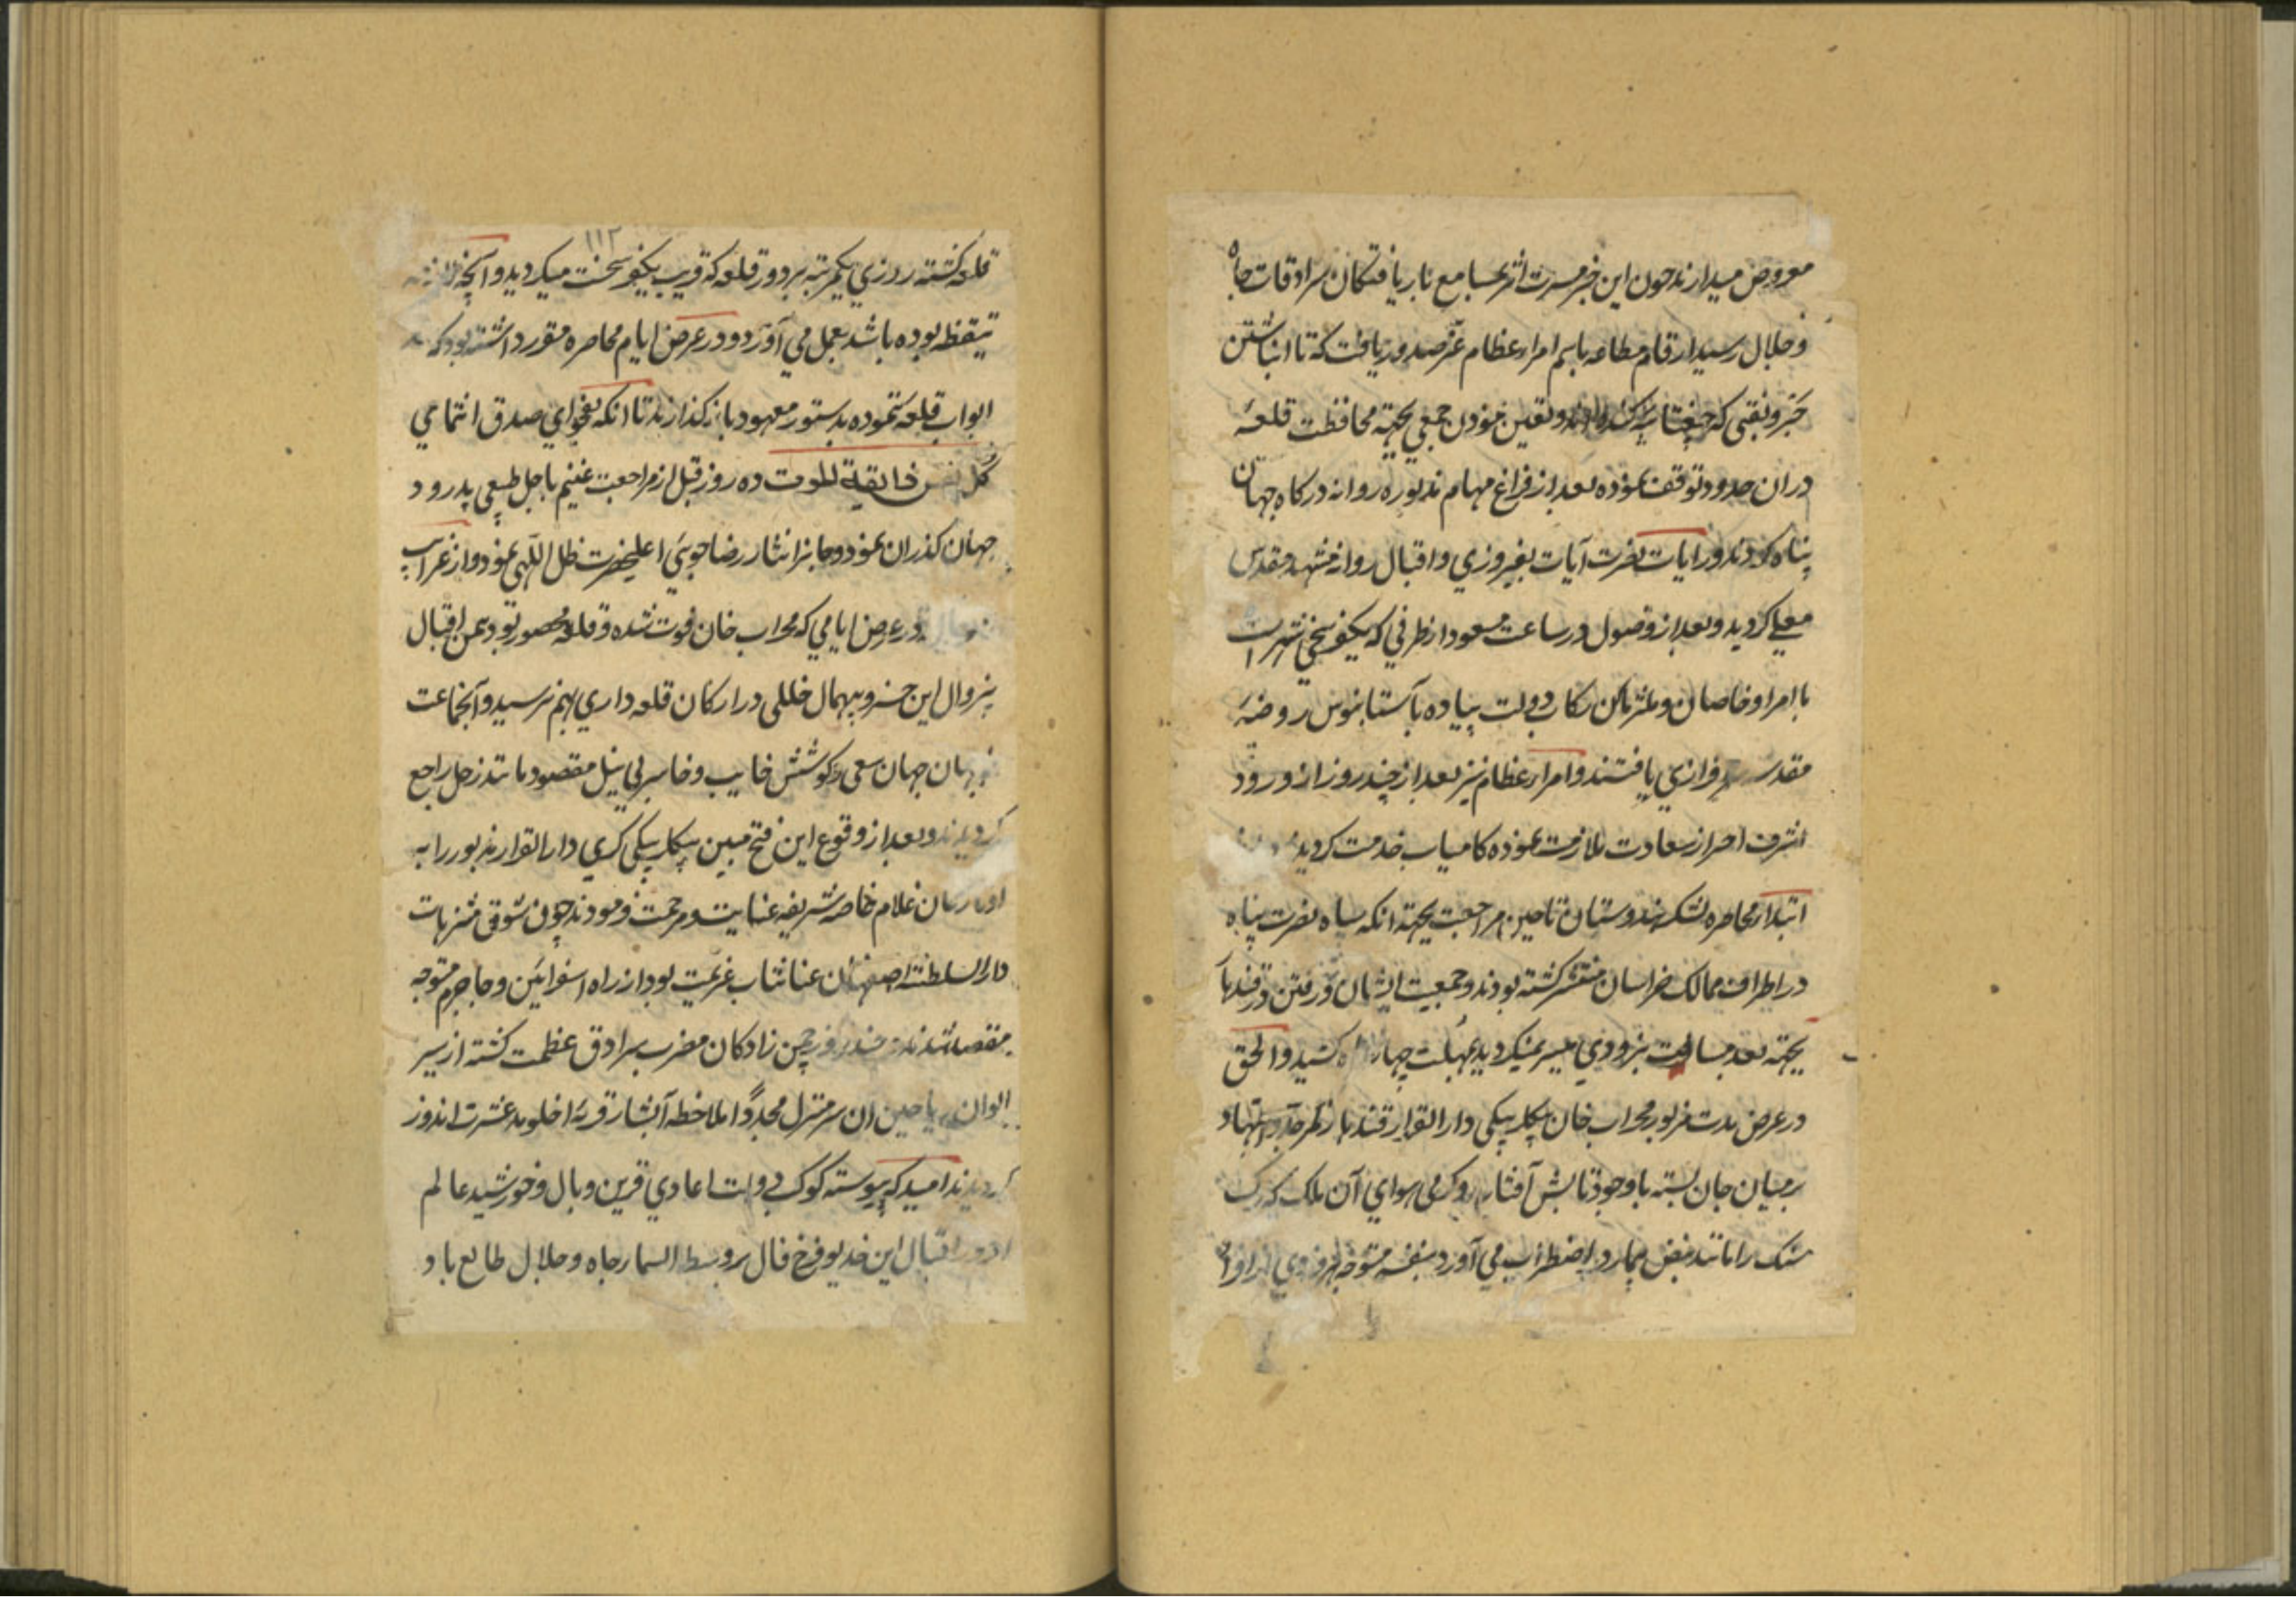 معروض میدارند چون این خبر مسرت اثر بمسامع بار یافتگان سرادقات جاه
و جلال رسید ارقام مطاعه باسم امراء عظام عز صدور یافت که تا انباشتن
و تعین نمودن جمعی بجهة محافظت قلعهٔ
دران حدود توقف نموده بعد از فراغ مهام مذبوره روانه درکاه جهان
پناه کردند و رایات نصرت آیات بفیروزی و اقبال روانه مشهد مقدس
معلی کردید و بعد از وصول در ساعت مسعود از طرفی که یکفرسخی شهر است
با امرا و خاصان و ملتزمان رکاب دولت پیاده بآستانبوس روضهٔ
مقدسه سرفرازی یافتند و امراء عظام نیز بعد از چند روز از ورود
اشرف احراز سعادت ملازمت نموده کامیاب خدمت کردید
ابتداء محاصره لشکر هندوستان تا حین مراجعت بجهة انکه سپاه نصرت پناه
در اطراف ممالک خراسان منتشر کشته بودند و جمعیت ایشان و رفتن قندهار
بجهة بعد مسافت بزودی میسر نمیکردید بمهلت چهار ماه کشید و الحق
در عرض مدت مزبور محراب خان بیکلربیکی دار القرار قندهار کمر جد و اجتهاد
بر میان جان بسته با وجود تابش آفتاب و کرمی هوای آن ملک که رک
سنک را مانند نبض بیمار در اضطراب می آورد بنفسه متوجه
۱۱۲
قلعه کشته روزی یکمرتبه بر دور قلعه که قریب بیکفرسخست میکردید و آنچه لازمه
تیقظ بوده باشد بعمل می آورد و در عرض ایام محاصره مقرر داشته بود که
ابواب قلعه ننموده بدستور معهود باز کذارند تا انکه بفحوای صدق انتمای
کل نفس ذائقة الموت ده روز قبل از مراجعت غنیم باجل طبیعی پدرود
جهان کذران نمود و جانرا نثار رضا جوئی اعلیحضرت ظل اللهی نمود و از غرایب
در عرض ایامی که محراب خان فوت شده و قلعه محصور بود بیمن اقبال
بیزوال این خسرو بیهمال خللی در ارکان قلعه داری بهم نرسید و آنجماعت
جهان جهان سعی و کوشش خایب و خاسر بی نیل مقصود مانند زحل راجع
کردیدند و بعد از وقوع این فتح مبین بیکلربیکی کری دار القرار مذبور را به
غلام خاصه شریفه عنایت و مرحمت فرمودند چون شوق متنزهات
دار السلطنه اصفهان عنانتاب عزیمت بود از راه اسفراین و جاجرم متوجه
مقصد شدند چند روز چمن زادکان مضرب سرادق عظمت کشته از سیر
الوان ریاحین ان سر منزل مجددا ملاحظه آبشار قریهٔ اخلومد عشرت اندوز
کردیدند امید که پیوسته کوکب دولت اعادی قرین وبال و خورشید عالم
افروز اقبال این خدیو فرخ فال بر وسط السماء جاه و جلال طالع باد